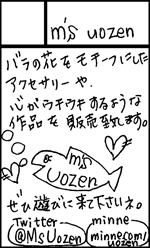 m's uozen
バラの花をモチーフにした
アクセサリーや、
心がウキウキするような
作品を販売致します。
m's
uozen
ぜひ遊びに来て下さいネ。
Twitter
@MsUozen
minne
minne.com/
uozen